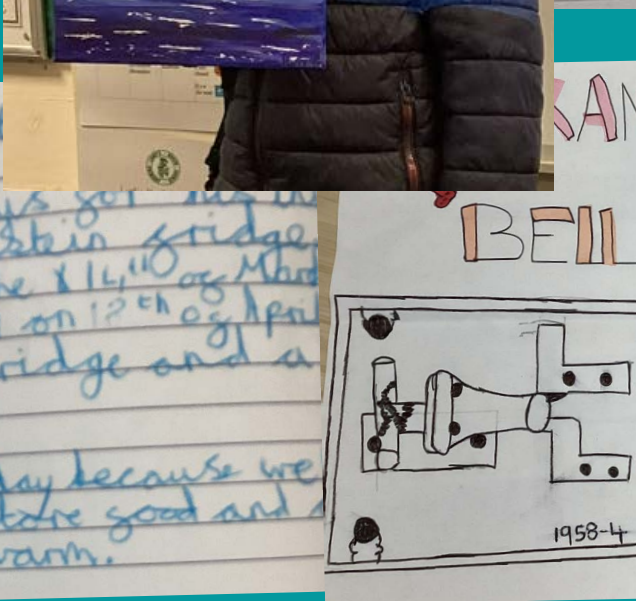 stein fridge
14th of March
on 12th of April
ridge and a
day because we
store good and
warm.
KAN
BELL
1958-4